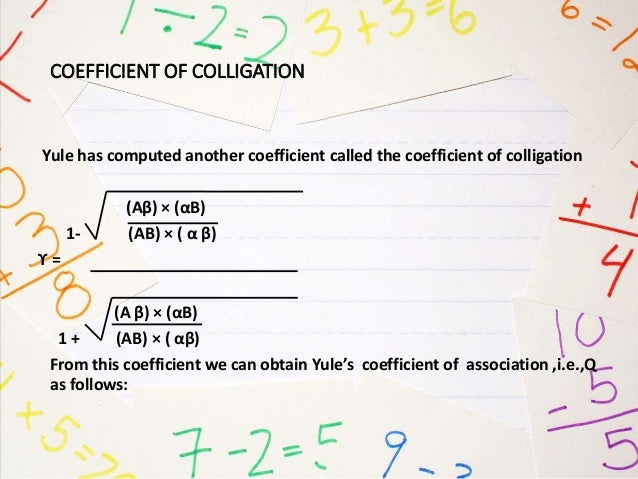 1÷2=2
3+3=6
6=1
COEFFICIENT OF COLLIGATION
Yule has computed another coefficient called the coefficient of colligation
(Aβ) × (αB)
1- √ (AB) × ( α β)
ϒ =
(A β) × (αB)
1 + √ (AB) × ( αβ)
From this coefficient we can obtain Yule’s coefficient of association ,i.e.,Q
as follows:
3
+ 8
+ 1
4
10
- 5
5
+5=
7-2=5
9-